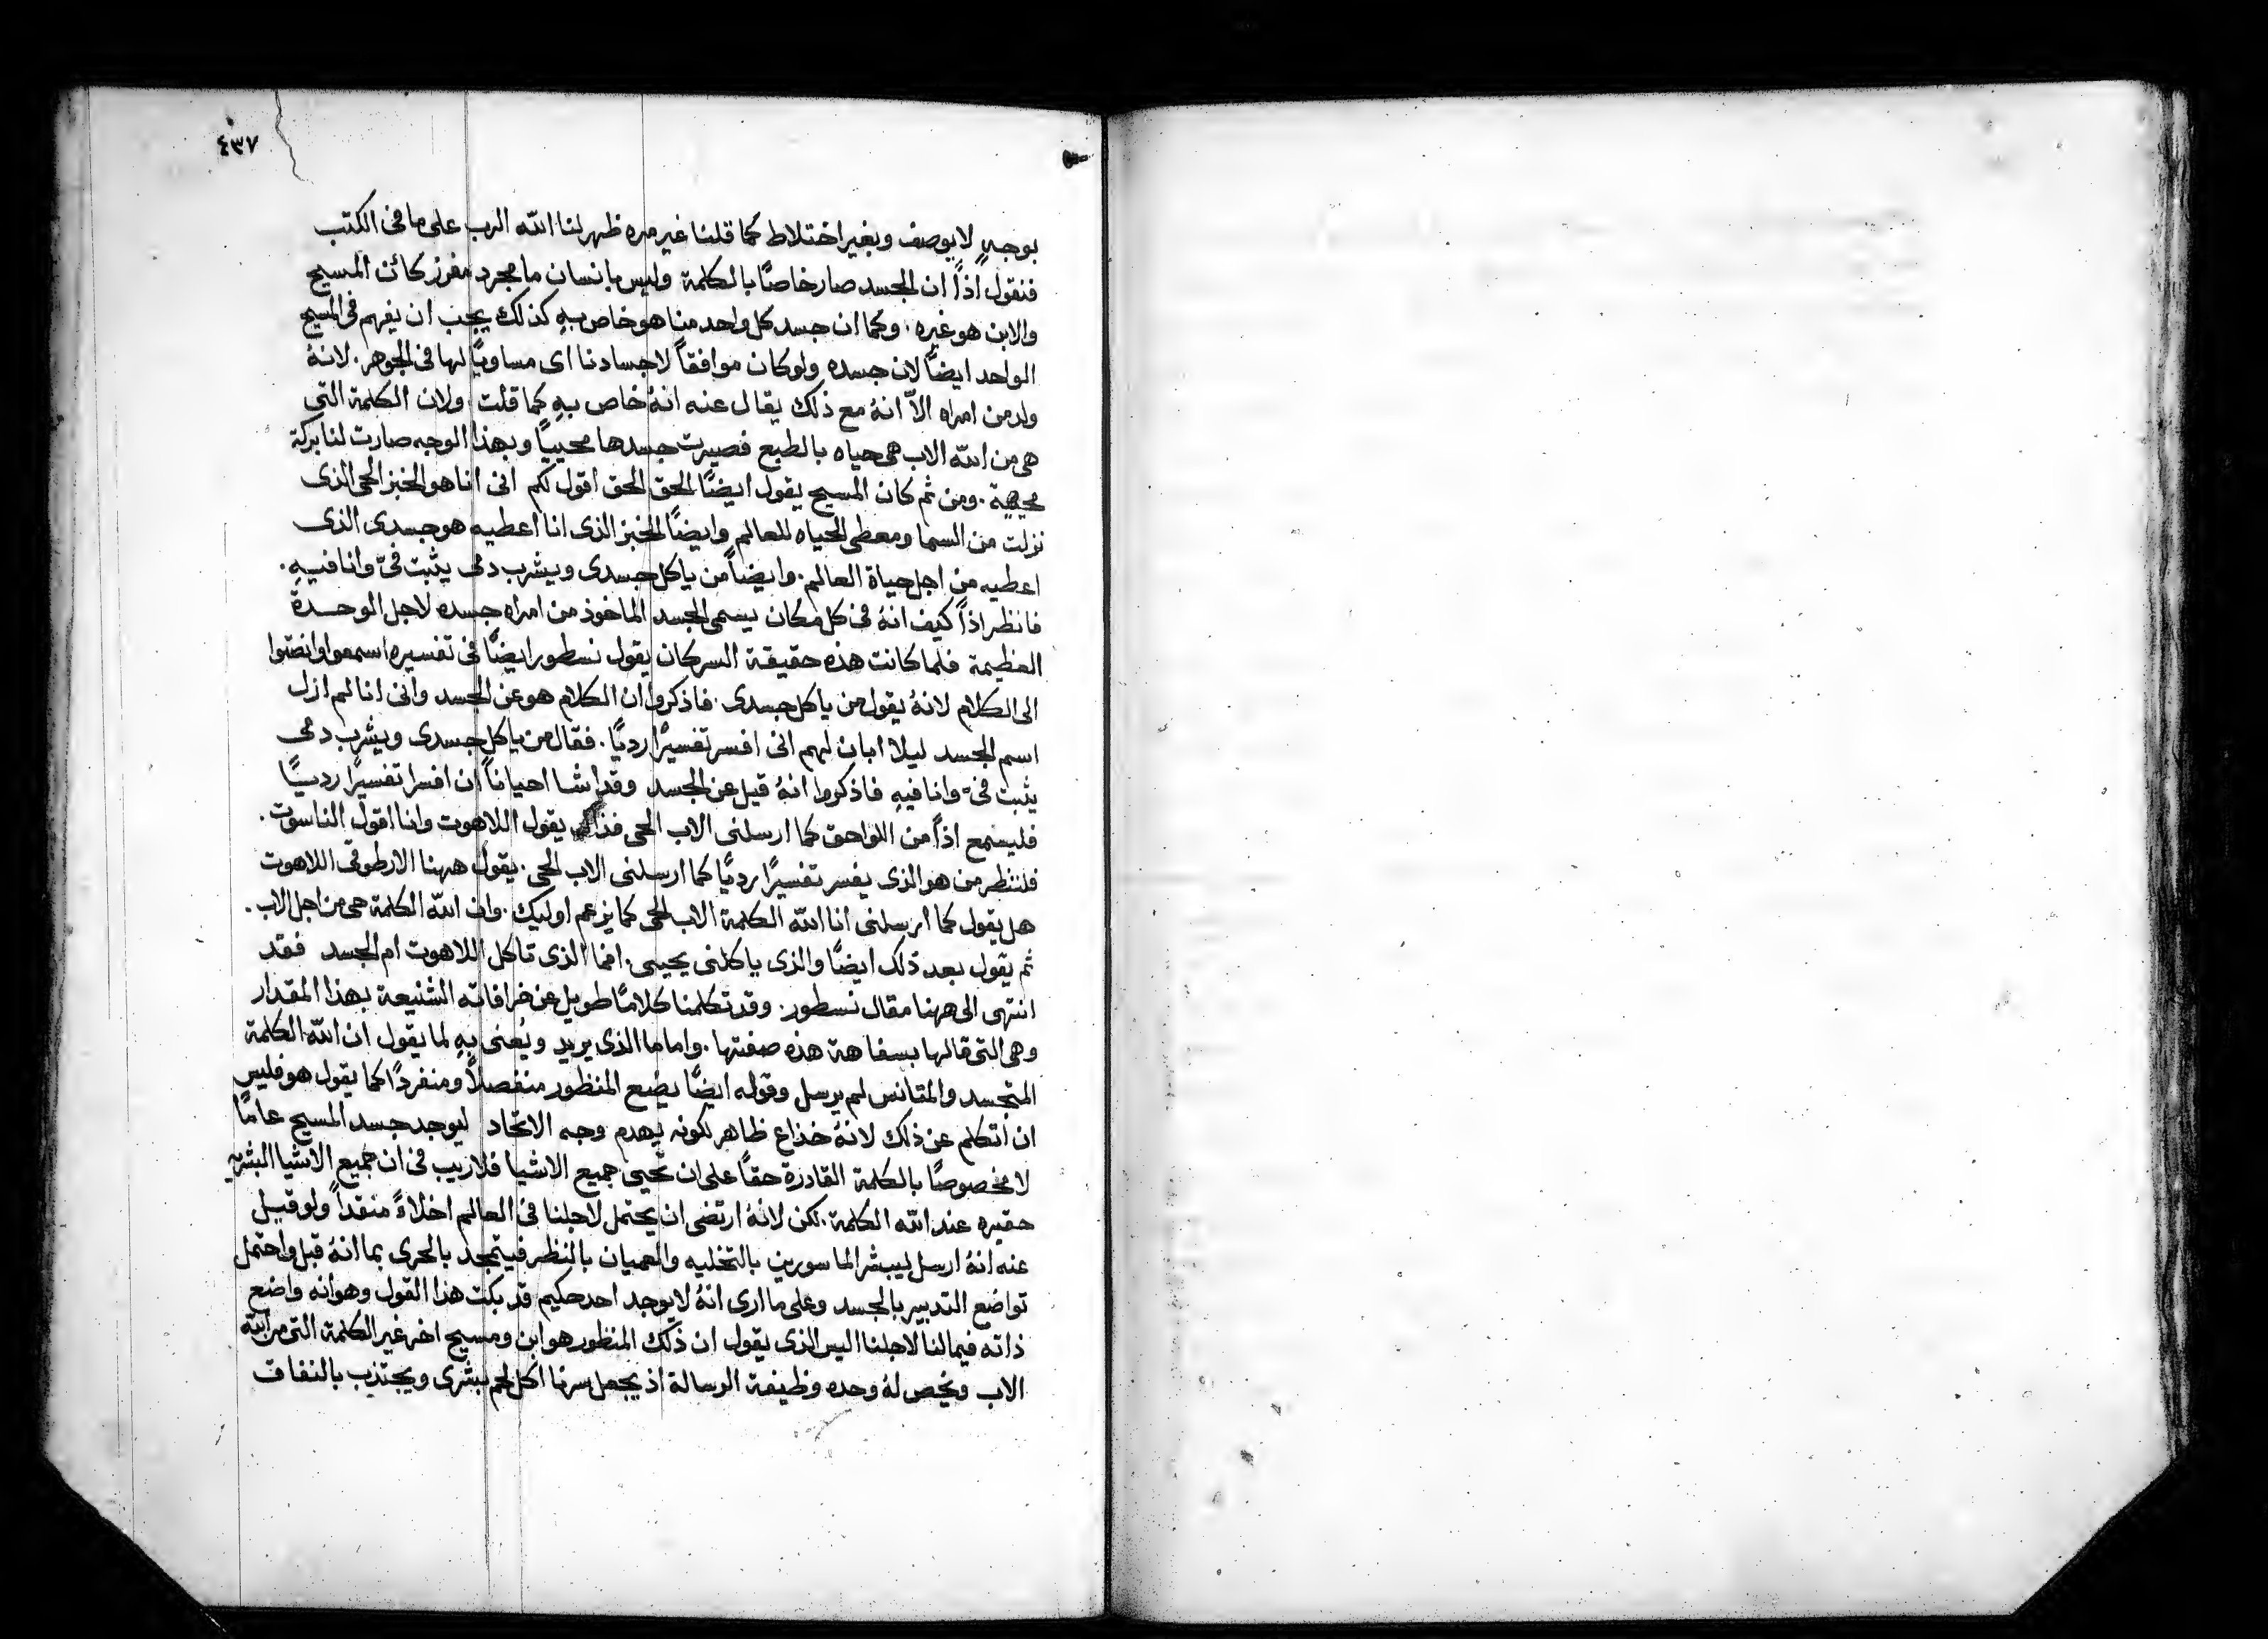 ٤٣٧
بوجهٍ لا يوصف وبغير اختلاط كما قلنا غير مره ظهر لنا الله الرب على ما فى الكتب
فنقول اذاً ان الجسد صار خاصًا بالكلمة وليس بانسان ما مجرد مفرز كائن المسيح
والابن هو غيره. وكما ان جسد كل واحد منا هو خاص بهِ كذلك يجب ان يفهم فى المسيح
الواحد ايضًا لان جسده ولو كان موافقاً لاجسادنا اى مساويًا لها فى الجوهر. لانهُ
ولد من امراه الاّ انهُ مع ذلك يقال عنه انهُ خاص بهِ كما قلت ولان الكلمة التى
هى من الله الاب هى حياه بالطبع فصيرت جسدها محييًا وبهذا الوجه صارت لنا بركة
محييهة. ومن ثم كان المسيح يقول ايضًا الحق الحق اقول لكم انى انا هو الخبز الحى الذى
نزلت من السما ومعطى الحياه للعالم وايضًا الخبز الذى انا اعطيه هو جسدى الذى
اعطيه من اجل حياة العالم. وايضاً من ياكل جسدى ويشرب دمى يثبت فىّ وانا فيهِ.
فانظر اذاً كيف انهُ فى كل مكان يسمى الجسد الماخوذ من امراه جسده لاجل الوحدة
العظيمة فلما كانت هذه حقيقة السر كان يقول نسطور ايضًا فى تفسيره اسمعوا وانصتوا
الى الكلام لانهُ يقول من ياكل جسدى. فاذكروا ان الكلام هو عن الجسد وانى انا لم ازل
اسم الجسد ليلا ابان لهم انى افسر تفسيرًا رديًا. فقال من ياكل جسدى ويشرب دمى
يثبت فىّ وانا فيهِ فاذكروا انهُ قيل عن الجسد وقد اشا احياناً ان افسر تفسيرًا رديًا
فليسمع اذاً من اللواحق كما ارسلنى الاب الحى فذاك يقول اللاهوت وانا اقول الناسوت.
فلننظر من هو الذى يفسر تفسيرًا رديًا كما ارسلنى الاب الحى. يقول ههنا الارطوقى اللاهوت
هل يقول كما ارسلنى انا الله الكلمة الاب الحى كما يزعم اوليك. وان الله الكلمة حى من اجل الاب.
ثم يقول بعد ذلك ايضًا والذى ياكلنى يحيى. افما الذى تاكل اللاهوت ام الجسد فقد
انتهى الى ههنا مقال نسطور. وقد تكلمنا كلامًا طويل عن خرافاته الشنيعة بهذا المقدار
وهى التى قالها بسفاهة هذه صفتها. واما ما الذى يريد ويُعنى بهِ لما يقول ان الله الكلمة
المتجسد والمتانس لم يرسل وقوله ايضًا يضع المنظور منفصلاً ومنفردًا كما يقول هو فليس
ان اتكلم عن ذلك لانهُ خداع ظاهر لكونه يهدم وجه الاتحاد ليوجد جسد المسيح عامًا
لا مخصوصًا بالكلمة القادرة حقاً على ان تحيى جميع الاشيا فلا ريب فى ان جميع الاشيا البشريه
حقيره عند الله الكلمة. لكن لانهُ ارتضى ان يحتمل لاجلنا فى العالم اخلاءً منقذاً ولو قيل
عنه انهُ ارسل ليبشر الماسورين بالتخليه والعميان بالنظر فيتمجد بالحرى بما انهُ قبل واحتمل
تواضع التدبير بالجسد وعلى ما ارى انهُ لا يوجد احد حكيم قد بكت هذا القول وهو انه واضع
ذاته فيما لنا لاجلنا اليس الذى يقول ان ذلك المنظور هو ابن ومسيح اخر غير الكلمة التى من الله
الاب ويُخص لهُ وحده وظيفة الرسالة اذ يجعل سرنا اكل لحم بشرى ويجتذب بالنفاق